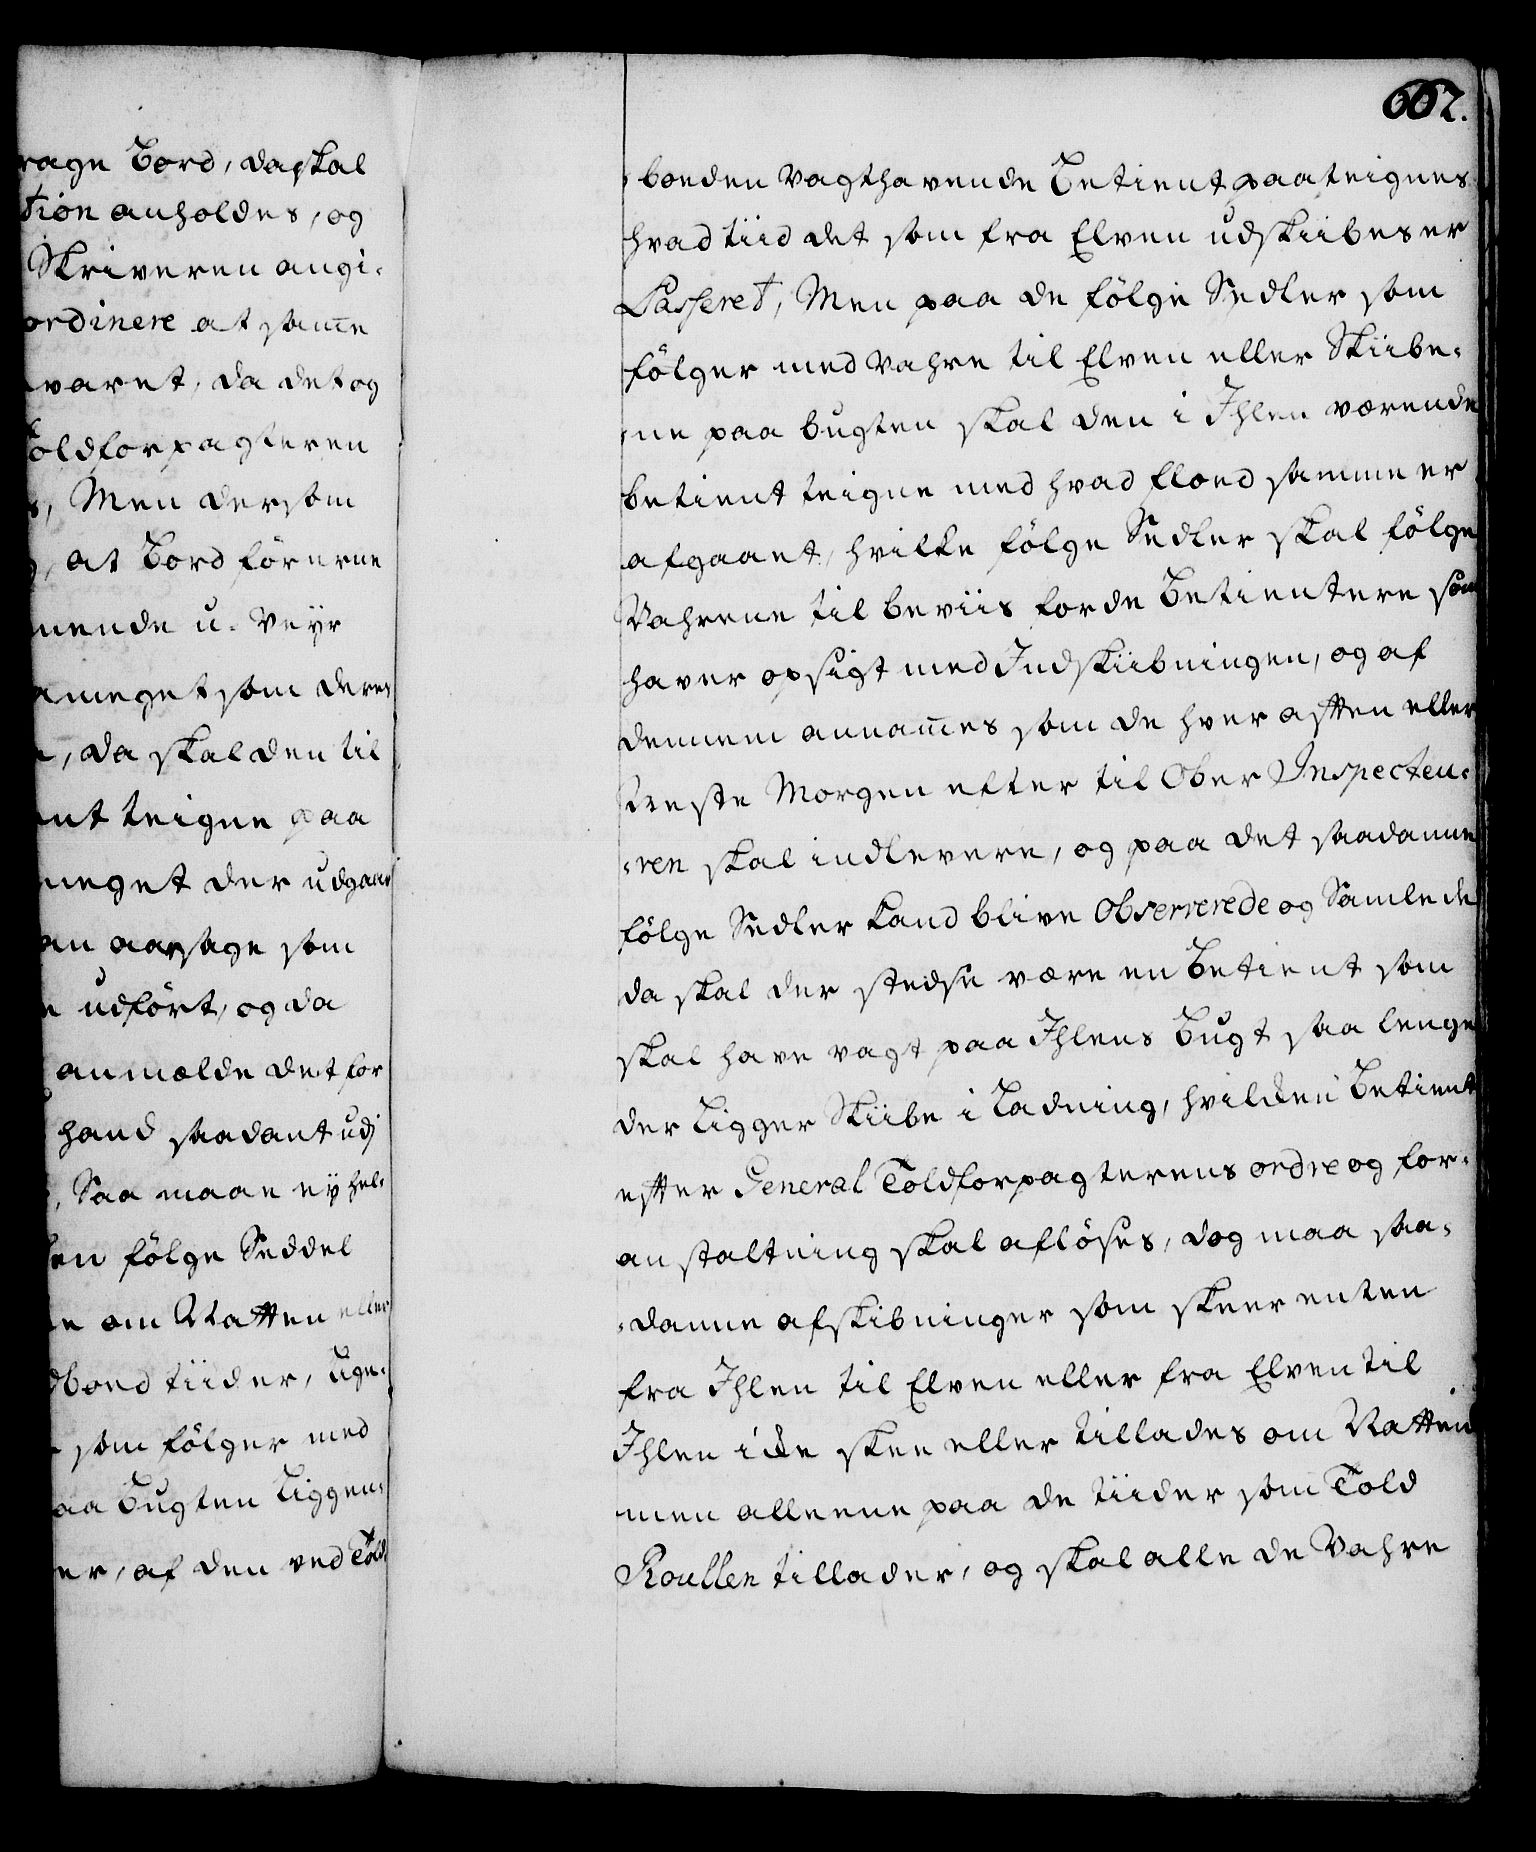 662.
rage Bord, da skal
tion anholdes, og
Skriveren angi-
ordinere at sam̅e
varet, da det og
Toldforpagteren
Men dersom
at Bord förerne
mende u-Veyr
meget som deres
, da skal den til
ent teigne paa
meget der udgaar
an aarsage som
udfört, og da
anmælde det for
hand saadant udj
, Saa maae ey hel-
en fölge Seddel
om Natten eller
dbond tiider, lige-
som fölger med
aa Bugten Liggen-
er, af den ved Told
-bonden vagthavende Betient paateignes
hvad tiid det som fra Elven udskiibes er
Passeret, Men paa de fölge Sedler som
fölger med Vahre til Elven eller Skiibe-
-ne paa bugten skal den i Ihlen værende
betient teigne med hvad floed samme er
afgaaet, hvilke fölge Sedler skal fölge
Vahrene til beviis for de Betientere som
haver opsigt med Indskiibningen, og af
dennem annam̅es som de hver afften eller
Neste Morgen efter til Ober Inspecteu-
-ren skal indlevere, og paa det saadanne
fölge Sedler kand blive Observerede og Samlede
da skal der stedse være en Betient som
skal have vagt paa Ihlens Bugt saa lenge
der Ligger Skiibe i Ladning, hvilken Betient
efter General Toldforpagterens ordre og for-
anstaltning skal aflöses, dog maa saa-
-danne afskibninger som skeer enten
fra Ihlen til Elven eller fra Elven til
Ihlen icke skee eller tillades om Natten
men alleene paa de tiider som Told
Roullen tillader, og skal alle de Vahre